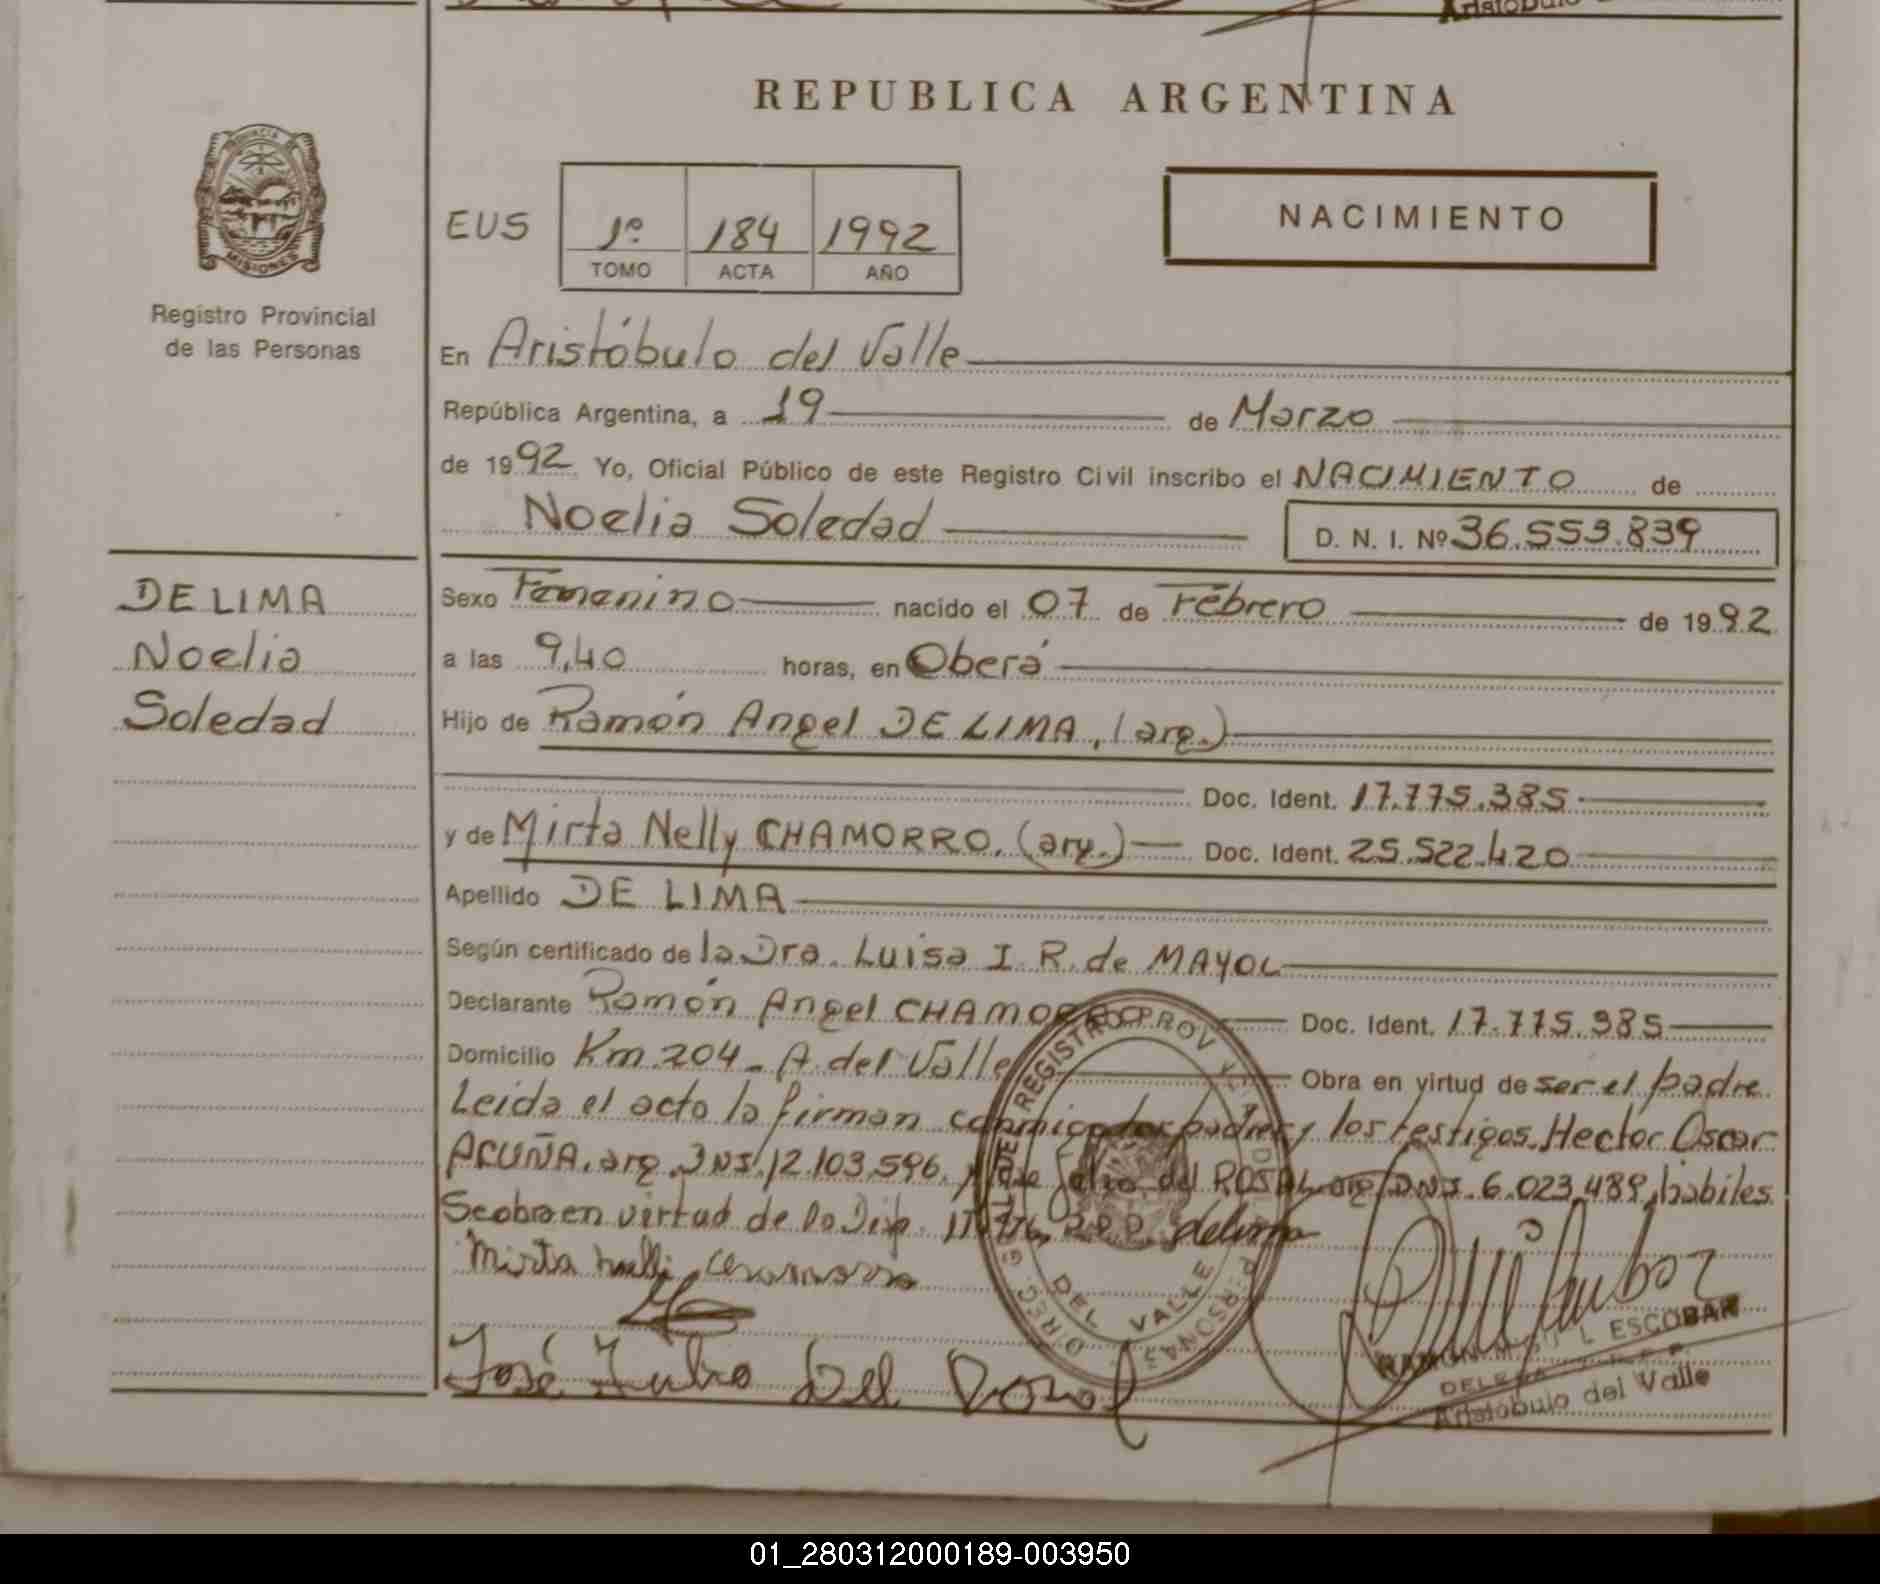 REPUBLICA ARGENTINA
MISIONES
Registro Provincial
de las Personas
EUS
1º 184 1992
TOMO ACTA AÑO
NACIMIENTO
En Aristóbulo del Valle
República Argentina, a 19 de Marzo
de 1992 Yo, Oficial Público de este Registro Civil inscribo el NACIMIENTO de
Noelia Soledad D. N. I. Nº 36.553.839
DE LIMA
Noelia
Soledad
Sexo Femenino nacido el 07 de Febrero de 1992
a las 9,40 horas, en Oberá
Hijo de Ramón Angel DE LIMA, (arg.)
Doc. Ident. 17.775.385
y de Mirta Nelly CHAMORRO, (arg.) Doc. Ident. 25.522.420
Apellido DE LIMA
Según certificado de la Dra. Luisa I. R. de MAYOL
Declarante Ramón Angel CHAMORRO Doc. Ident. 17.775.385
Domicilio Km. 204 - A. del Valle Obra en virtud de ser el padre.
Leida el acta la firman conmigo los padres y los testigos Hector Oscar
ACUÑA, arg. DNI. 12.103.596, y José Julio del ROSAL arg. DNI. 6.023.489, habiles.
Se obra en virtud de la Disp. R.P.P. delima
Mirta
José Julio Del
REGISTRO PROV
DEL VALLE
PERSONAS
RAMON L ESCOBAR
Aristóbulo del Valle
01_280312000189-003950